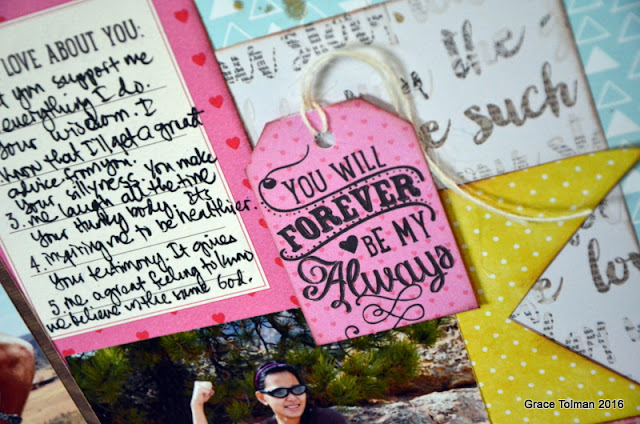 LOVE ABOUT YOU:
you support me
everything I do.
your wisdom. I
know that I'll get a great
advice from you.
your sillyness. You make
3. me laugh all the time
your body. It's
4. inspiring me to be healthier.
Your testimony. It gives
5. me a great feeling to know
we believe in the same God.
YOU WILL
FOREVER
BE MY
Always
the
such
Grace Tolman 2016